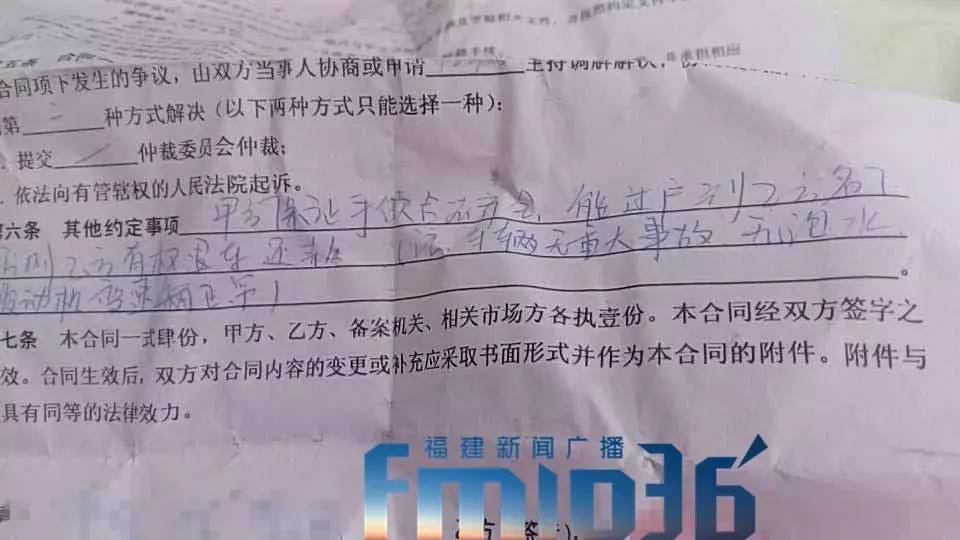 合同项下发生的争议，由双方当事人协商或申请 主持调解解决，
第 二 种方式解决（以下两种方式只能选择一种）：
. 提交 / 仲裁委员会仲裁；
. 依法向有管辖权的人民法院起诉。
六条 其他约定事项 甲方保证手续合法齐全，能过户到乙方名下
否则乙方有权退车还款 车辆无重大事故 无泡水
发动机变速箱正常）。
七条 本合同一式肆份，甲方、乙方、备案机关、相关市场方各执壹份。本合同经双方签字之
效。合同生效后，双方对合同内容的变更或补充应采取书面形式并作为本合同的附件。附件与
具有同等的法律效力。
福建新闻广播
fm1036